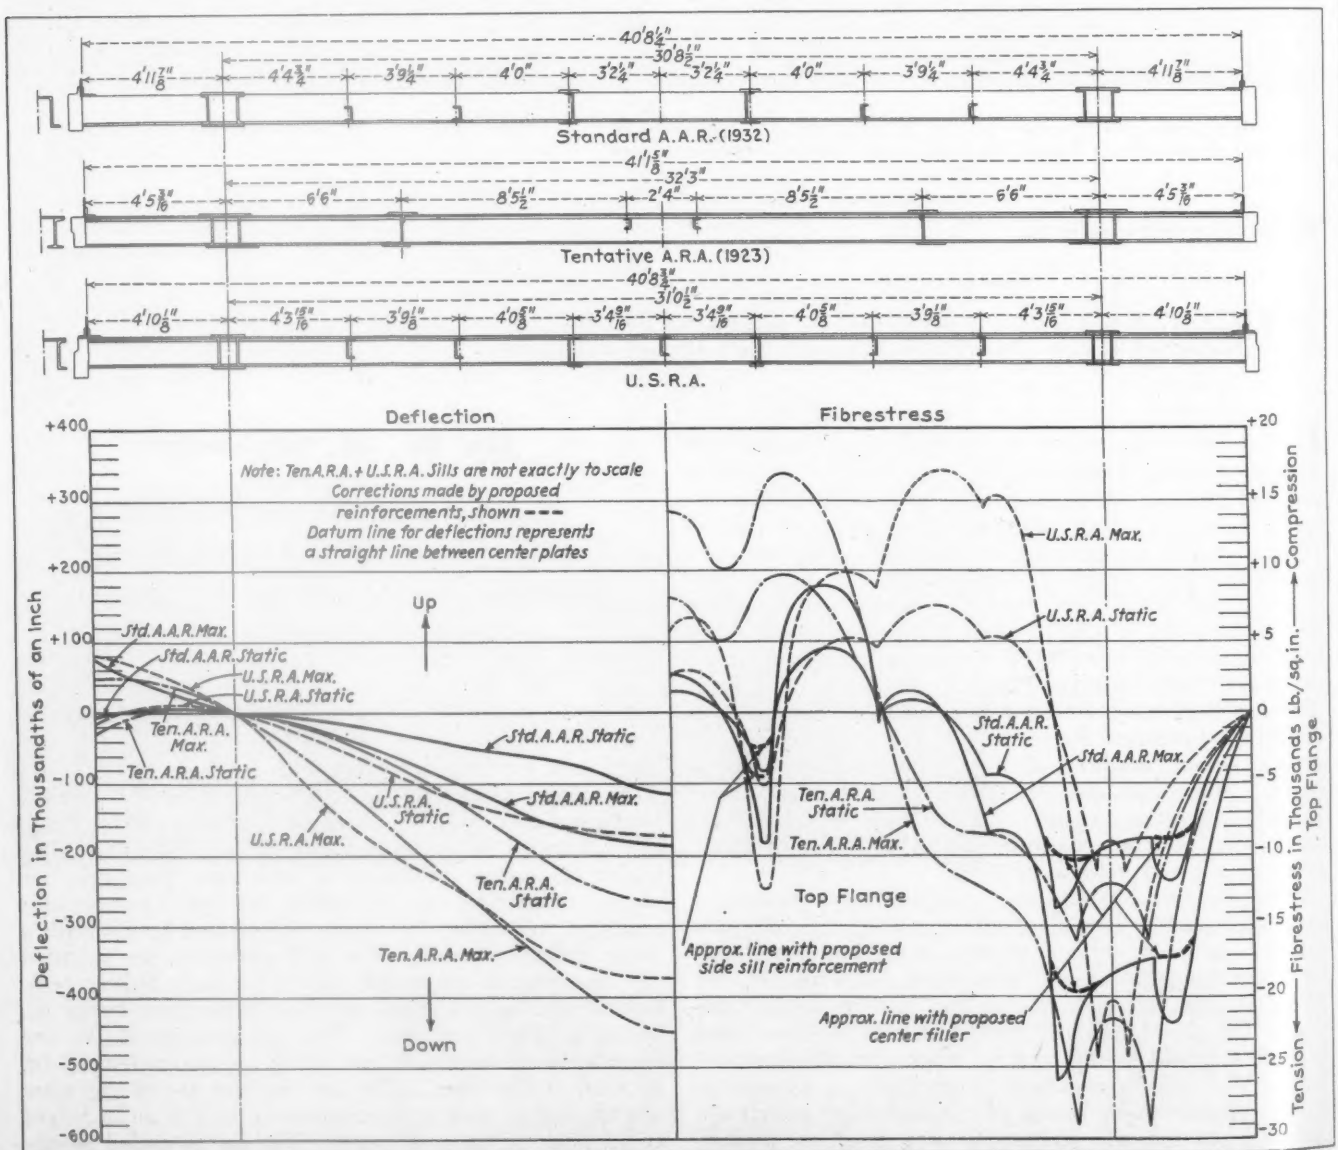 40'8 1/4"
30'8 1/2"
4'11 7/8" 4'4 3/4" 3'9 1/4" 4'0" 3'2 1/4" 3'2 1/4" 4'0" 3'9 1/4" 4'4 3/4" 4'11 7/8"
Standard A.A.R.(1932)
41'1 5/8"
32'3"
4'5 3/16" 6'6" 8'5 1/2" 2'4" 8'5 1/2" 6'6" 4'5 3/16"
Tentative A.R.A.(1923)
40'8 3/4"
31'0 1/2"
4'10 1/8" 4'3 15/16" 3'9 1/8" 4'0 5/8" 3'4 9/16" 3'4 9/16" 4'0 5/8" 3'9 1/8" 4'3 15/16" 4'10 1/8"
U.S.R.A.
Deflection Fibrestress
+400
+300
+200
+100
0
-100
-200
-300
-400
-500
-600
Deflection in Thousandths of an Inch
Note: Ten.A.R.A.+U.S.R.A. Sills are not exactly to scale
Corrections made by proposed
reinforcements, shown ---
Datum line for deflections represents
a straight line between center plates
Up
Std.A.A.R.Max.
Std.A.A.R.Static
U.S.R.A.Max.
U.S.R.A.Static
Ten.A.R.A.
Max.
Ten.A.R.A.Static
U.S.R.A.Max.
U.S.R.A.
Static
Std.A.A.R.Static
Std.A.A.R.Max.
Ten.A.R.A.
Static
Ten.A.R.A.Max.
Down
U.S.R.A. Max.
U.S.R.A. Static
Std.A.A.R.
Static
Std.A.A.R.Max.
Ten.A.R.A.
Static
Ten.A.R.A.Max.
Top Flange
Approx. line with proposed
side sill reinforcement
Approx. line with proposed
center filler
+20
+15
+10
+5
0
-5
-10
-15
-20
-25
-30
Tension Fibrestress in Thousands Lb./sq.in. Compression
Top Flange